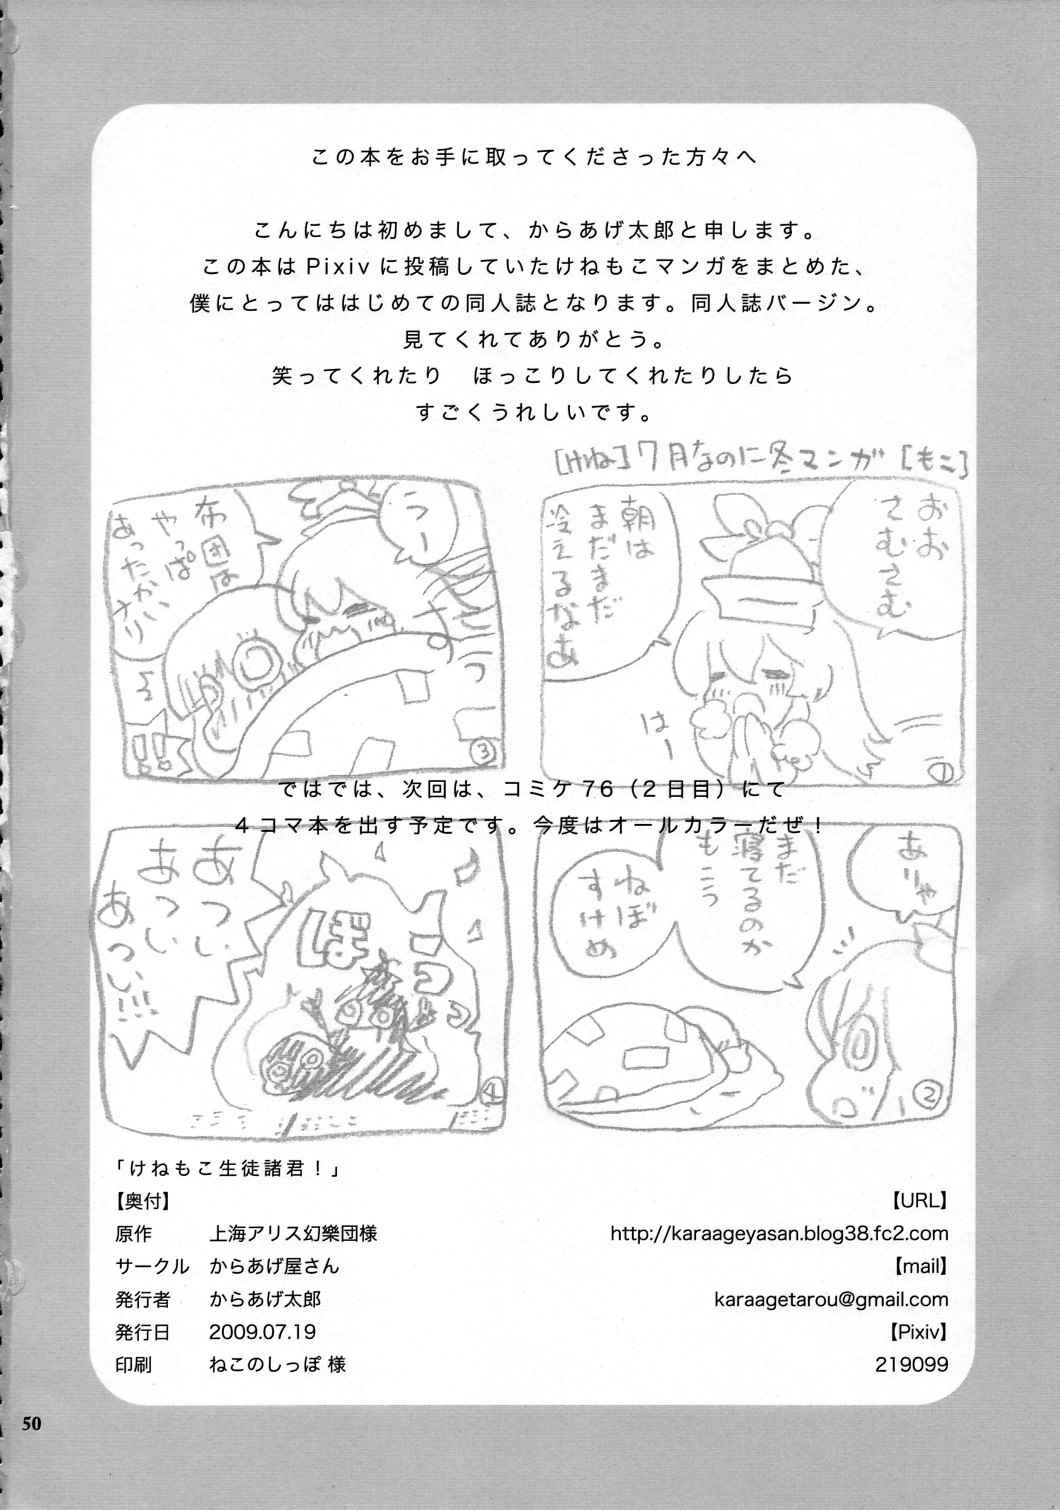 この本をお手に取ってくださった方々へ
こんにちは初めまして、からあげ太郎と申します。
この本はPixivに投稿していたけねもこマンガをまとめた、
僕にとってははじめての同人誌となります。同人誌バージン。
見てくれてありがとう。
笑ってくれたり　ほっこりしてくれたりしたら
すごくうれしいです。
[けね]7月なのに冬マンガ[もこ]
おお
さむさむ
朝は
まだまだ
冷えるなあ
はー
①
ありゃ
まだ
寝てるのか
もこっ
ねぼ
すけめ
②
うー
布団は
やっぱ
あったかい
③
ではでは、次回は、コミケ76（2日目）にて
4コマ本を出す予定です。今度はオールカラーだぜ！
あつい
あつい
あつい!!!
ぼ
④
「けねもこ生徒諸君！」
【奥付】
原作　上海アリス幻樂団様
サークル　からあげ屋さん
発行者　からあげ太郎
発行日　2009.07.19
印刷　ねこのしっぽ 様
【URL】
http://karaageyasan.blog38.fc2.com
【mail】
karaagetarou@gmail.com
【Pixiv】
219099
50